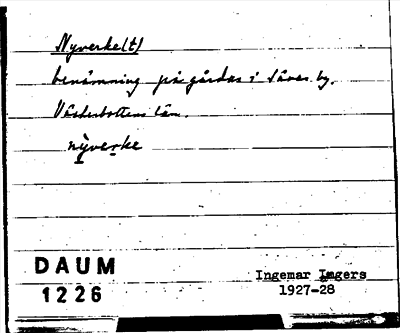 Nyverke(t)
benämning på gårdar i Sävar by.
Västerbottens län.
nỳverke
DAUM
1226
Ingemar Ingers
1927-28